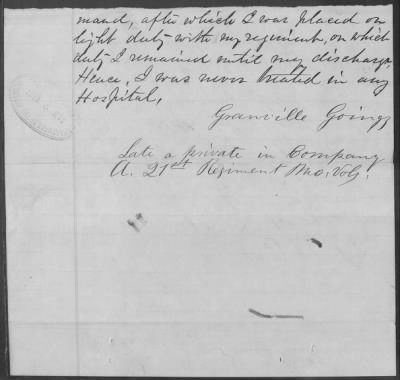 mand, after which I was placed on
light duty with my regiment, on which
duty I remained until my discharge.
Hence, I was never treated in any
Hospital,
Granville Goings
Late a private in Company
A. 21st Regiment Mo. Vols.